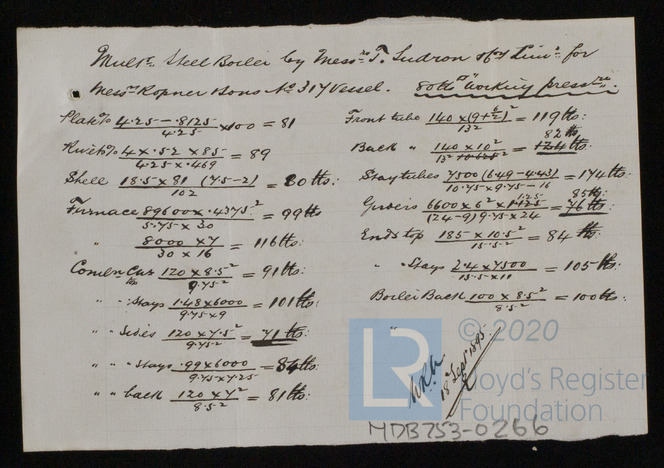 Multr. Steel Boiler by Messrs T. Sudron & Co Limd. for
Messrs Ropner & Sons No 317 Vessel. 80 lbs working pressure.
Plate % 4.25 - .8125 / 4.25 x 100 = 81
Rivet % 4 x .52 x 85 / 4.25 x .469 = 89
Shell 18.5 x 81 (7.5 - 2) / 102 = 80 lbs:
Furnace 89600 x .4375² / 5.75 x 30 = 99 lbs
" 8000 x 7 / 30 x 16 = 116 lbs:
Combn Car 120 x 8.5² / 9.75² = 91 lbs:
" " Stays 1.48 x 6000 / 9.75 x 9 = 101 lbs:
" " Sides 120 x 7.5² / 9.75² = 71 lbs:
" " " Stays .99 x 6000 / 9.75 x 7.25 = 84 lbs:
" " back 120 x 7² / 8.5² = 81 lbs:
Front tube 140 x (9 + 6/2)² / 13² = 119 lbs:
82 lbs
Back " 140 x 10² / 13² = 124 lbs:
Stay tubes 7500 (6.49 - 4.43) / 10.75 x 9.75 - 16 = 174 lbs:
85 lbs:
Girders 6600 x 6² x 1.125 / (24 - 9) 9.75 x 24 = 76 lbs:
Ends top 185 x 10.5² / 15.5² = 84 lbs:
" " Stays 2.4 x 7500 / 15.5 x 11 = 105 lbs:
Boiler Back 100 x 8.5² / 8.5² = 100 lbs:
"
18th Sept 1895
LR © 2020
Lloyd's Register
Foundation
MDB753-0266